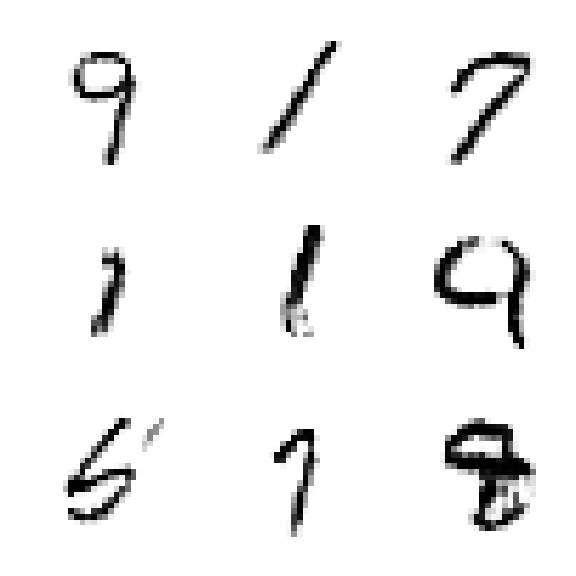 9 1 7
1 1 9
5 1 8